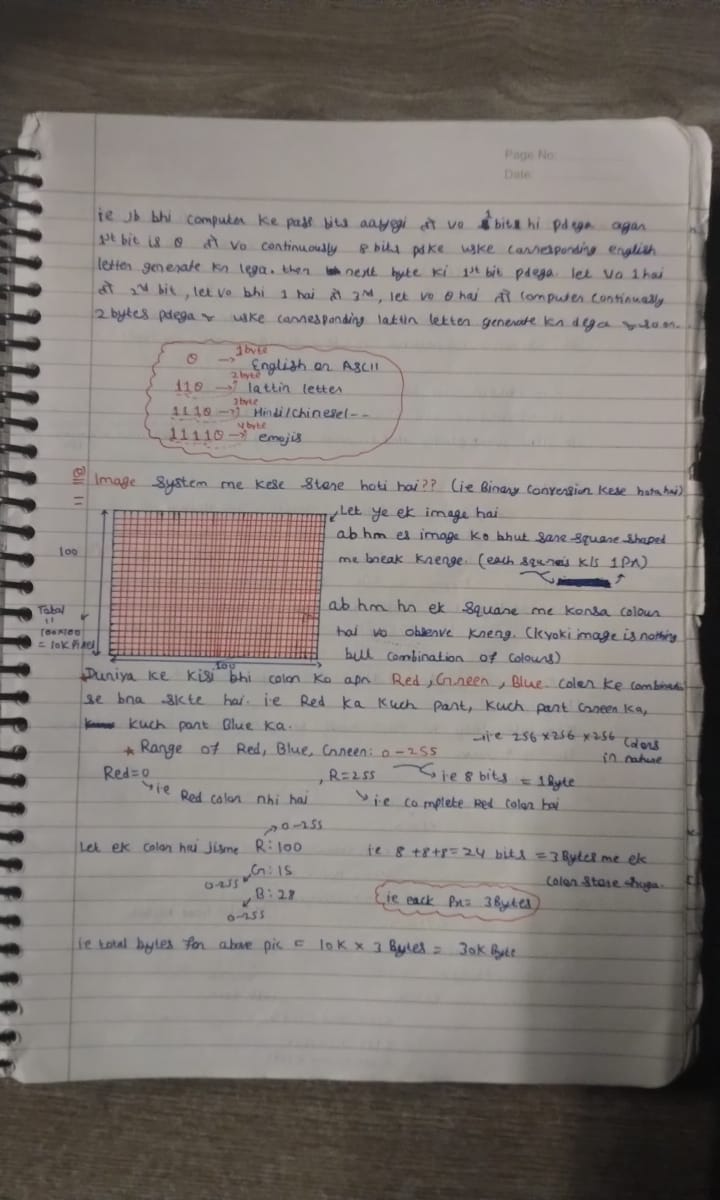 Page No:
Date:
ie jb bhi computer ke pass bits aayegi तो vo 1 bits hi pdega agar
1st bit is 0 तो vo continuously 8 bits pdke uske corresponding english
letter generate kr lega. then next byte ki 1st bit pdega let vo 1 hai
तो 2nd bit, let vo bhi 1 hai तो 3rd, let vo 0 hai तो computer continously
2 bytes pdega uske corresponding lattin letter generate kr dega so on.
0 → 1byte English or ASCII
110 → 2byte lattin letter
1110 → 3byte Hindi/chinese/--
11110 → 4byte emojis
Image System me kese store hoti hai?? (ie Binary conversion kese hota hai)
Let ye ek image hai
ab hm es image ko bhut sare square shaped
100
me break krenge. (each square is k/s 1Px)
Total
=
100x100
= 10K Pixel
ab hm hr ek square me konsa colour
hai vo observe kreng. (kyoki image is nothing
but combination of colours)
100
Duniya ke kisi bhi color ko apn Red, Green, Blue. color ke combination
se bna skte hai. ie Red ka kuch part, kuch part Green ka,
kuch part Blue ka.
→ ie 256 x 256 x 256 colors
in nature
★ Range of Red, Blue, Green: 0-255
Red=0 , R=255 → ie 8 bits = 1Byte
→ie Red color nhi hai → i.e complete Red color hai
→ 0-255
Let ek color hai jisme R:100 ie 8+8+8=24 bits = 3 Bytes me ek
G:15 color store hoga.
0-255
B:28 ie each Px= 3Bytes
0-255
ie total bytes for above pic = 10K x 3 Bytes = 30K Byte